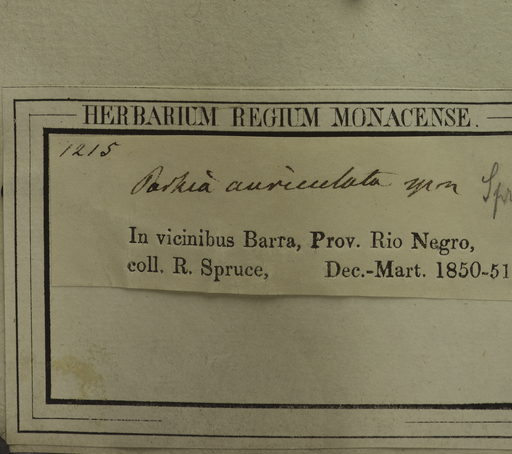 HERBARIUM REGIUM MONACENSE.
1215
Parkia auriculata Spr
In vicinibus Barra, Prov. Rio Negro,
coll. R. Spruce, Dec.-Mart. 1850-51